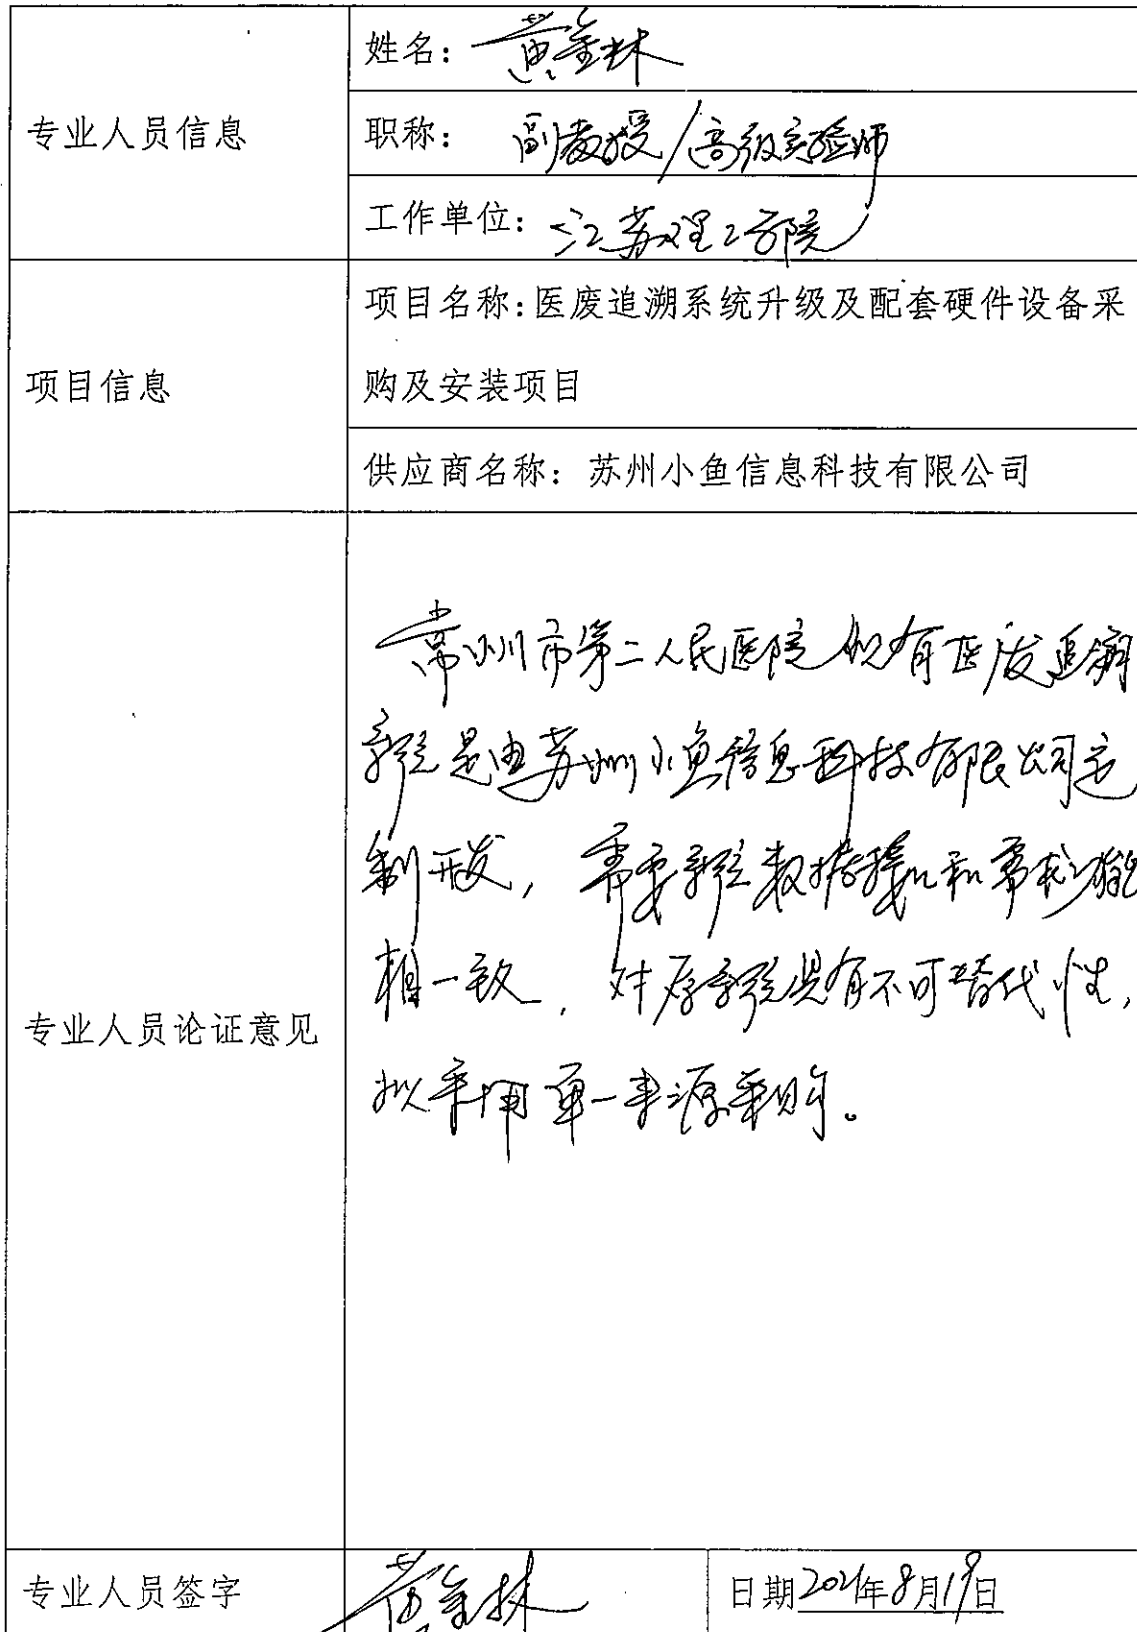 专业人员信息
姓名：黄金林
职称：副教授/高级实验师
工作单位：江苏理工学院
项目信息
项目名称：医废追溯系统升级及配套硬件设备采
购及安装项目
供应商名称：苏州小鱼信息科技有限公司
专业人员论证意见
常州市第二人民医院现有医废追溯
系统是由苏州小鱼信息科技有限公司定
制开发，需要系统数据接口和
相一致，对原系统具有不可替代性，
拟采用单一来源采购。
专业人员签字
黄金林
日期2021年8月19日